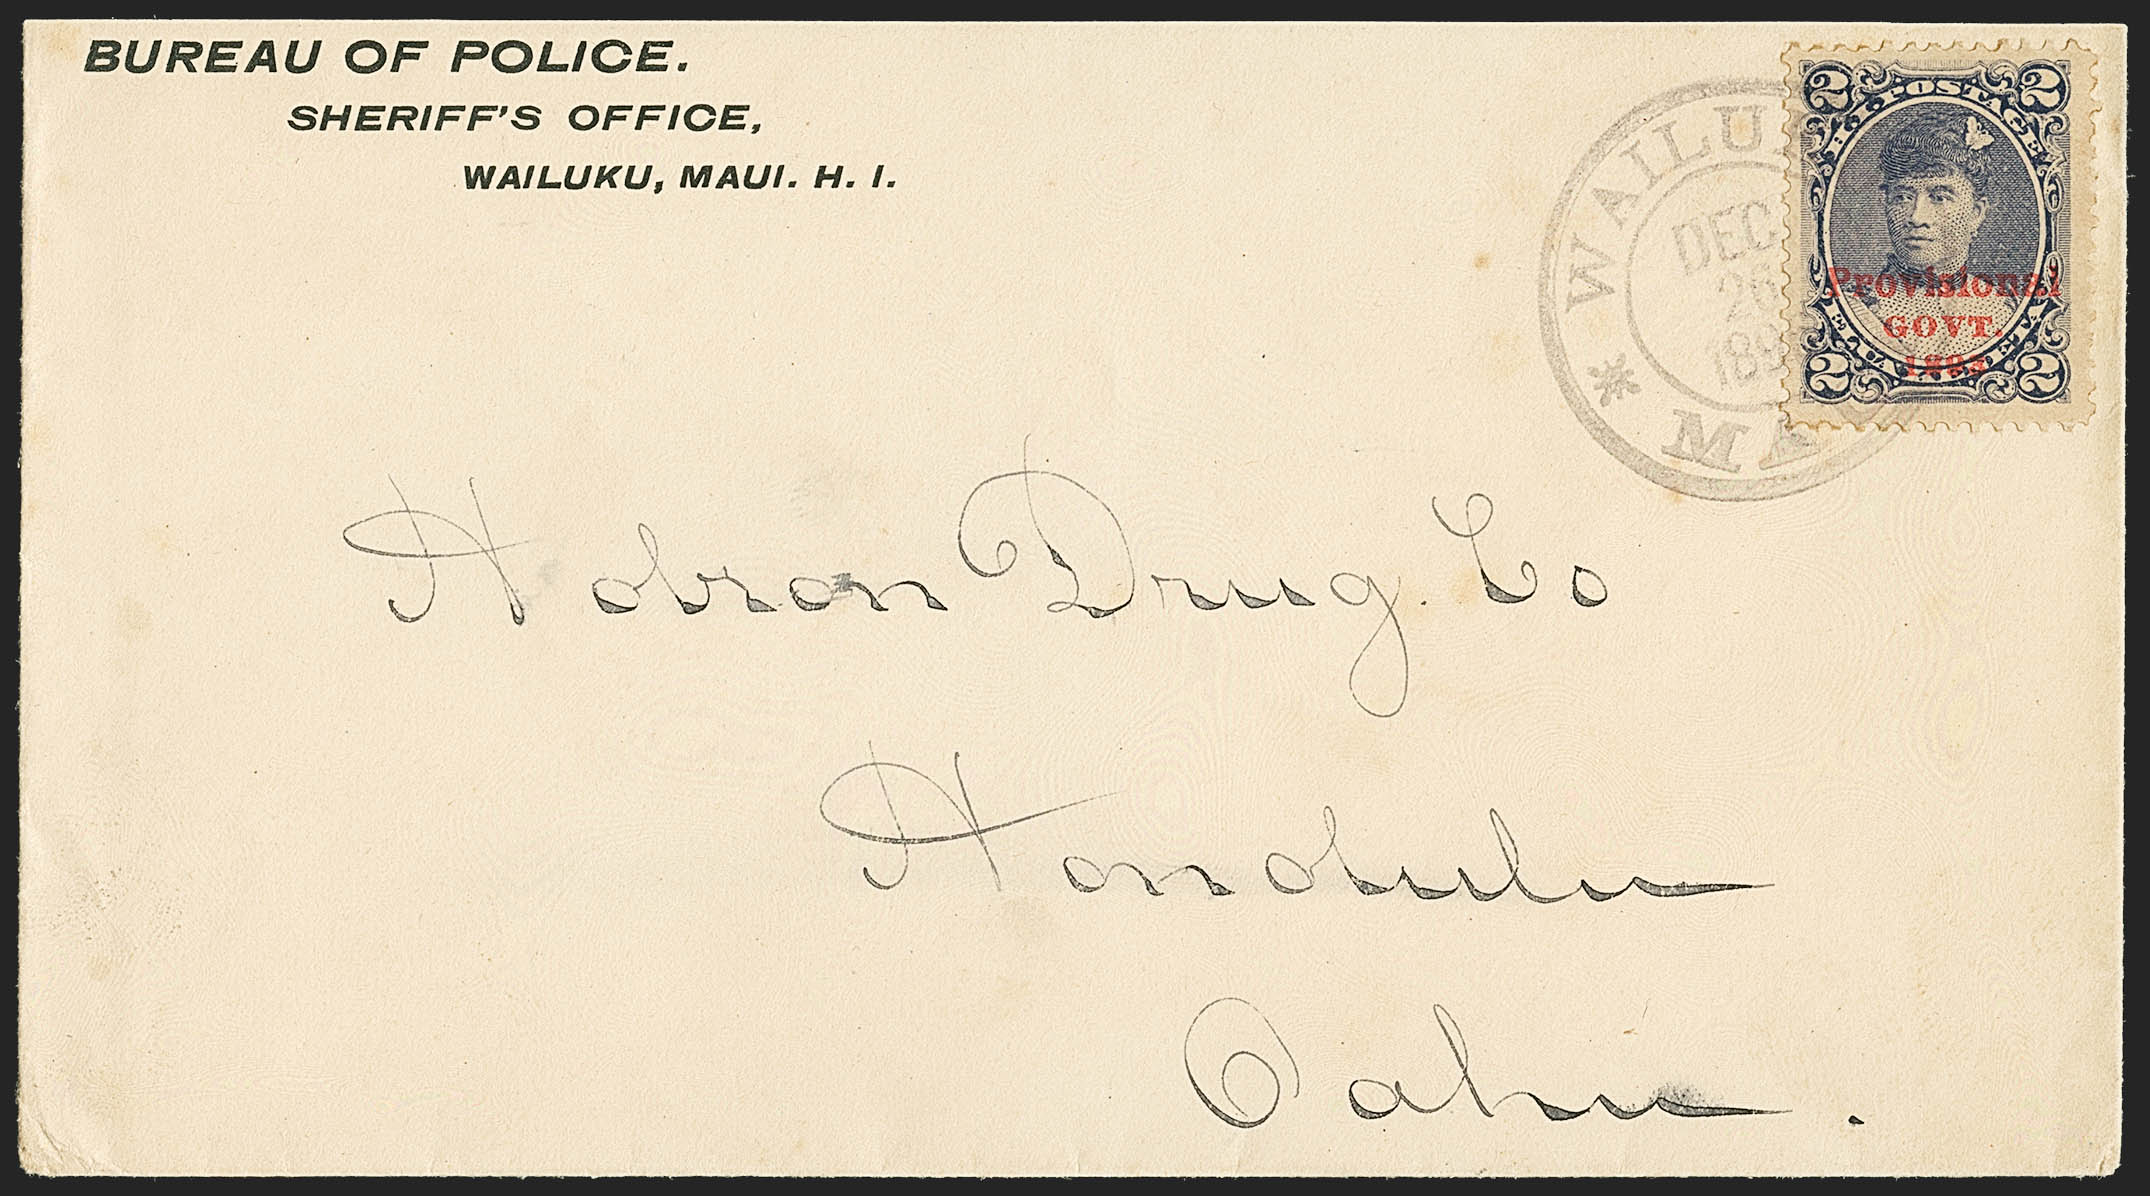 BUREAU OF POLICE.
SHERIFF'S OFFICE,
WAILUKU, MAUI. H. I.
WAILUKU
DEC
26
189
MAUI
2 POSTAGE 2
Provisional
GOVT.
1893
2 2
Hobron Drug. Co
Honolulu
Oahu.